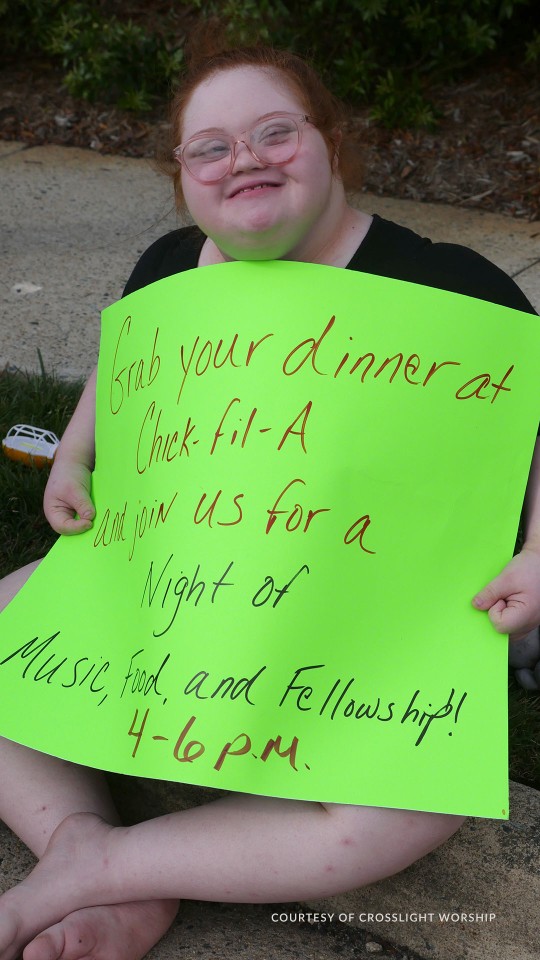 Grab your dinner at
Chick-fil-A
and join us for a
Night of
Music, Food, and Fellowship!
4-6 p.m.
COURTESY OF CROSSLIGHT WORSHIP